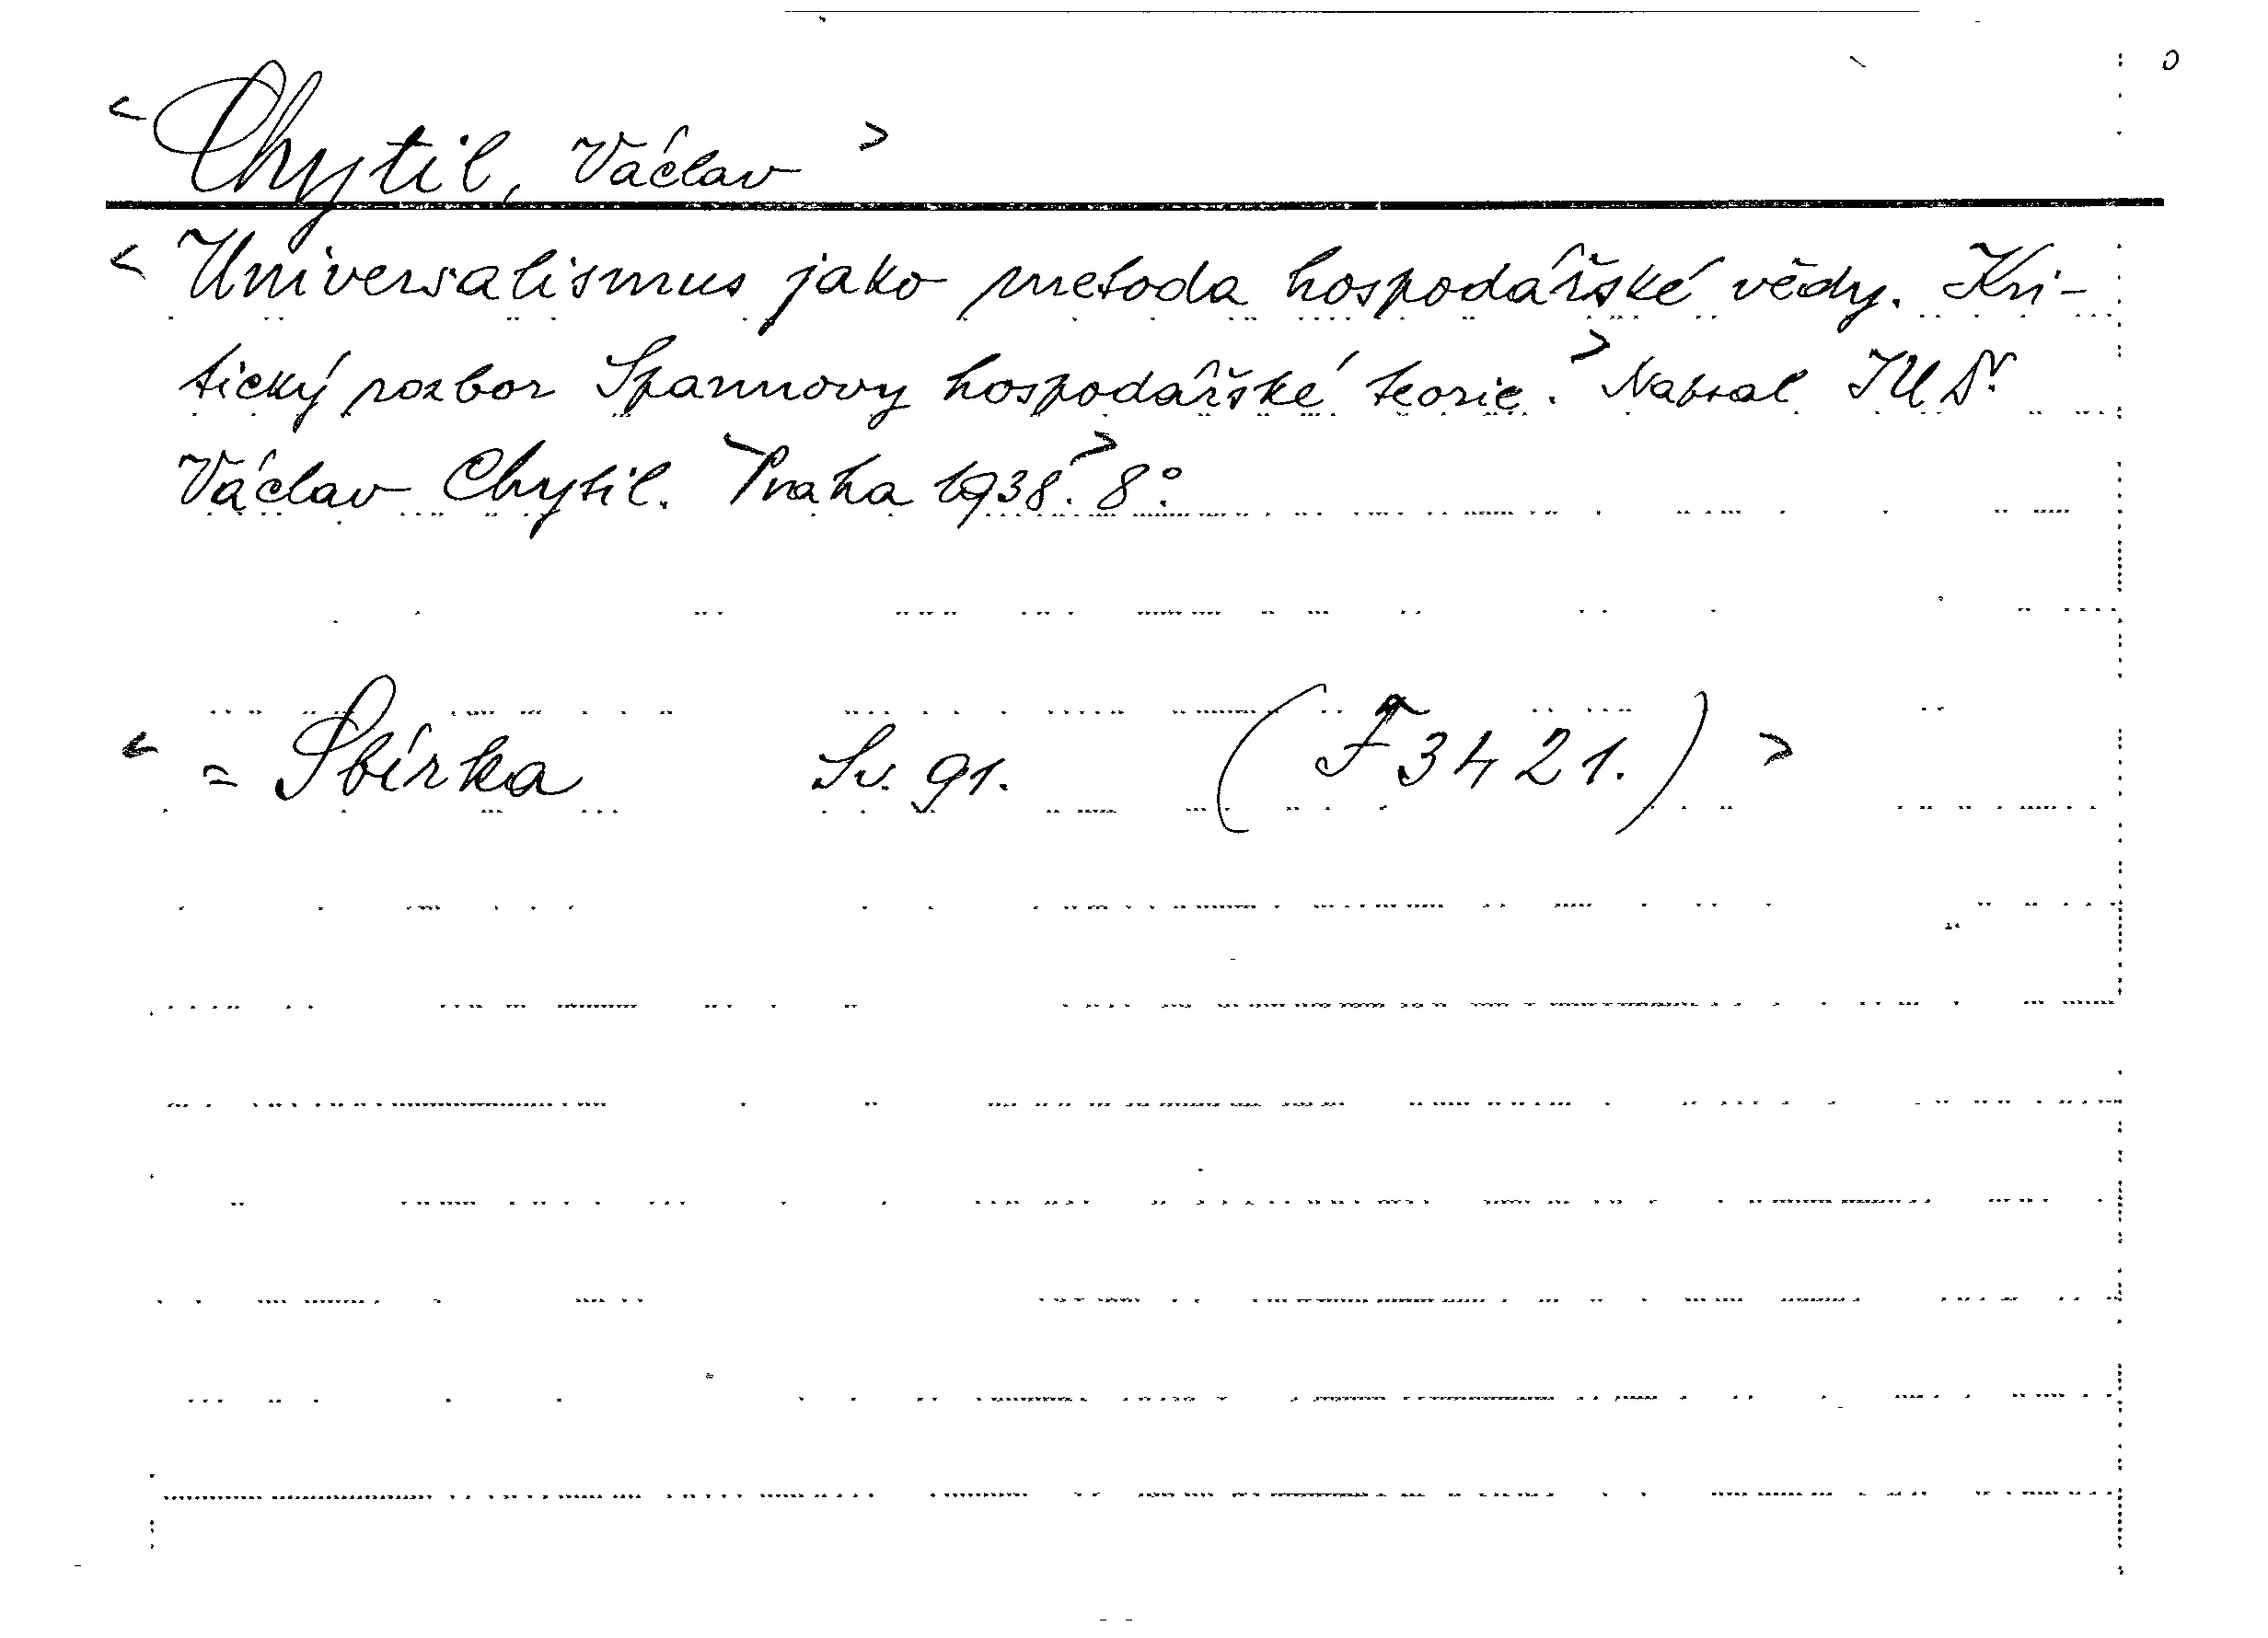 < Chytil, Václav >
< Universalismus jako metoda hospodářské vědy. Kri-
tický rozbor Spannovy hospodářské teorie. > Napsal JUDr.
Václav Chytil. > Praha 1938. > 8°.
< = Sbírka Sv. 91. (F 3421.) >